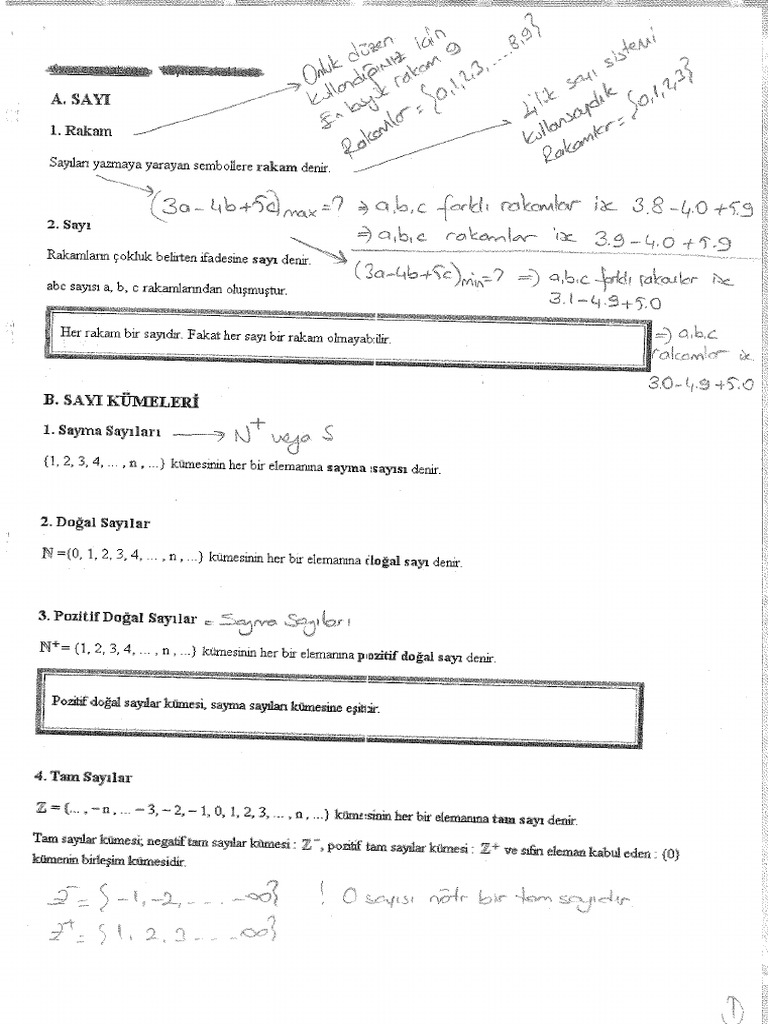 A. SAYI
1. Rakam
Onluk düzen
kullandığımız için
En büyük rakam 9
Rakamlar = {0,1,2,3, .... 8,9}
4'lük sayı sistemi
kullansaydık
Rakamlar = {0,1,2,3}
Sayıları yazmaya yarayan sembollere rakam denir.
(3a-4b+5c)max=? ⇒ a,b,c farklı rakamlar ix 3.8-4.0+5.9
2. Sayı
⇒ a,b,c rakamlar ix 3.9-4.0+5.9
Rakamların çokluk belirten ifadesine sayı denir.
(3a-4b+5c)min=? ⇒ a,b,c farklı rakamlar ix
3.1-4.9+5.0
abc sayısı a, b, c rakamlarından oluşmuştur.
Her rakam bir sayıdır. Fakat her sayı bir rakam olmayabilir.
⇒ a,b,c
rakamlar ix
3.0-4.9+5.0
B. SAYI KÜMELERİ
1. Sayma Sayıları → N+ veya S
{1, 2, 3, 4, ... , n , ...} kümesinin her bir elemanına sayma sayısı denir.
2. Doğal Sayılar
ℕ ={0, 1, 2, 3, 4, ... , n , ...} kümesinin her bir elemanına doğal sayı denir.
3. Pozitif Doğal Sayılar = Sayma Sayıları
ℕ+= {1, 2, 3, 4, ... , n , ...} kümesinin her bir elemanına pozitif doğal sayı denir.
Pozitif doğal sayılar kümesi, sayma sayıları kümesine eşittir.
4. Tam Sayılar
ℤ = {... , – n , ... – 3, – 2, – 1, 0, 1, 2, 3, ... , n , ...} kümesinin her bir elemanına tam sayı denir.
Tam sayılar kümesi; negatif tam sayılar kümesi : ℤ–, pozitif tam sayılar kümesi : ℤ+ ve sıfırı eleman kabul eden : {0}
kümenin birleşim kümesidir.
Z- = {-1, -2, .... -∞} ! 0 sayısı nötr bir tam sayıdır.
Z+ = {1, 2, 3 .... ∞}
1